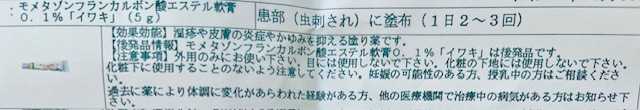 モメタゾンフランカルボン酸エステル軟膏
0.1%「イワキ」(5g)
患部(虫刺され)に塗布(1日2~3回)
【効果効能】湿疹や皮膚の炎症やかゆみを抑える塗り薬です。
【後発品情報】モメタゾンフランカルボン酸エステル軟膏0.1%「イワキ」は後発品です。
【注意事項】外用のみにお使い下さい。目には使用しないで下さい。化粧の下地には使用しないで下さい。
化粧下に使用することのないよう注意してください。妊娠の可能性のある方、授乳中の方はご相談くださ
い。
過去に薬により体調に変化があらわれた経験がある方、他の医療機関で治療中の病気がある方はお知らせ下
さい。